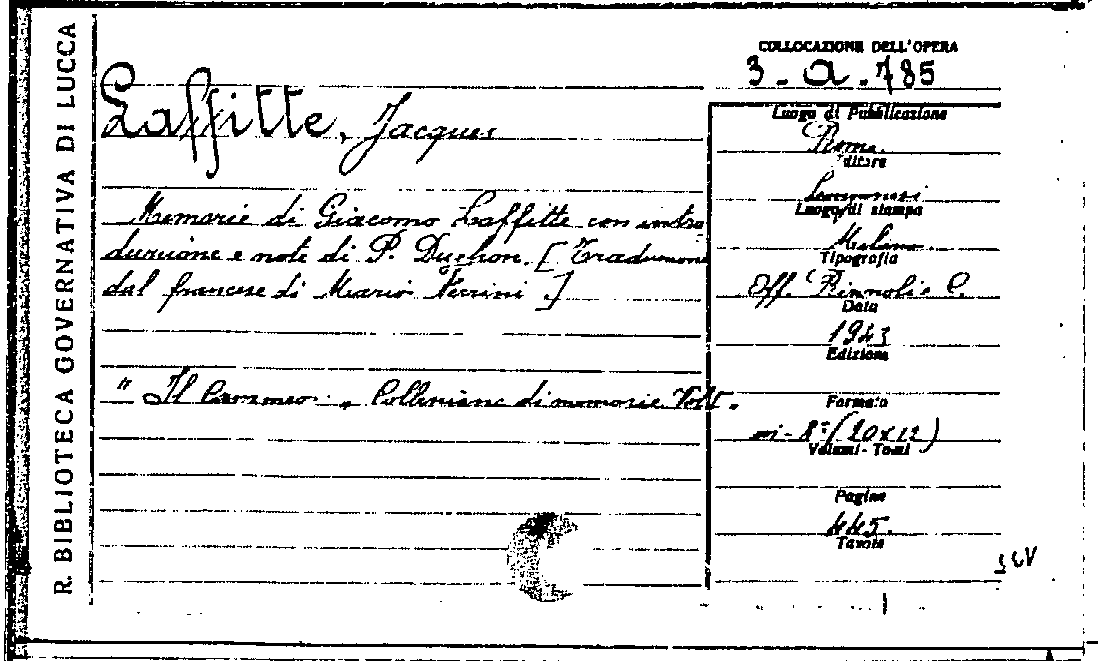 R. BIBLIOTECA GOVERNATIVA DI LUCCA
COLLOCAZIONE DELL'OPERA
3 - a. 785
Laffitte, Jacques
Memorie di Giacomo Laffitte con intro
duzione e note di P. Duchon. [Traduzione
dal francese di Mario Nerini.]
" Il Cammeo. „ Collezione di memorie. Vol.
Luogo di Pubblicazione
Roma.
Editore
Luogo di stampa
Milano.
Tipografia
Off. Rizzoli e C.
Data
1943
Edizione
Formato
in-8° (20x12)
Volumi - Tomi
Pagine
445.
Tavole